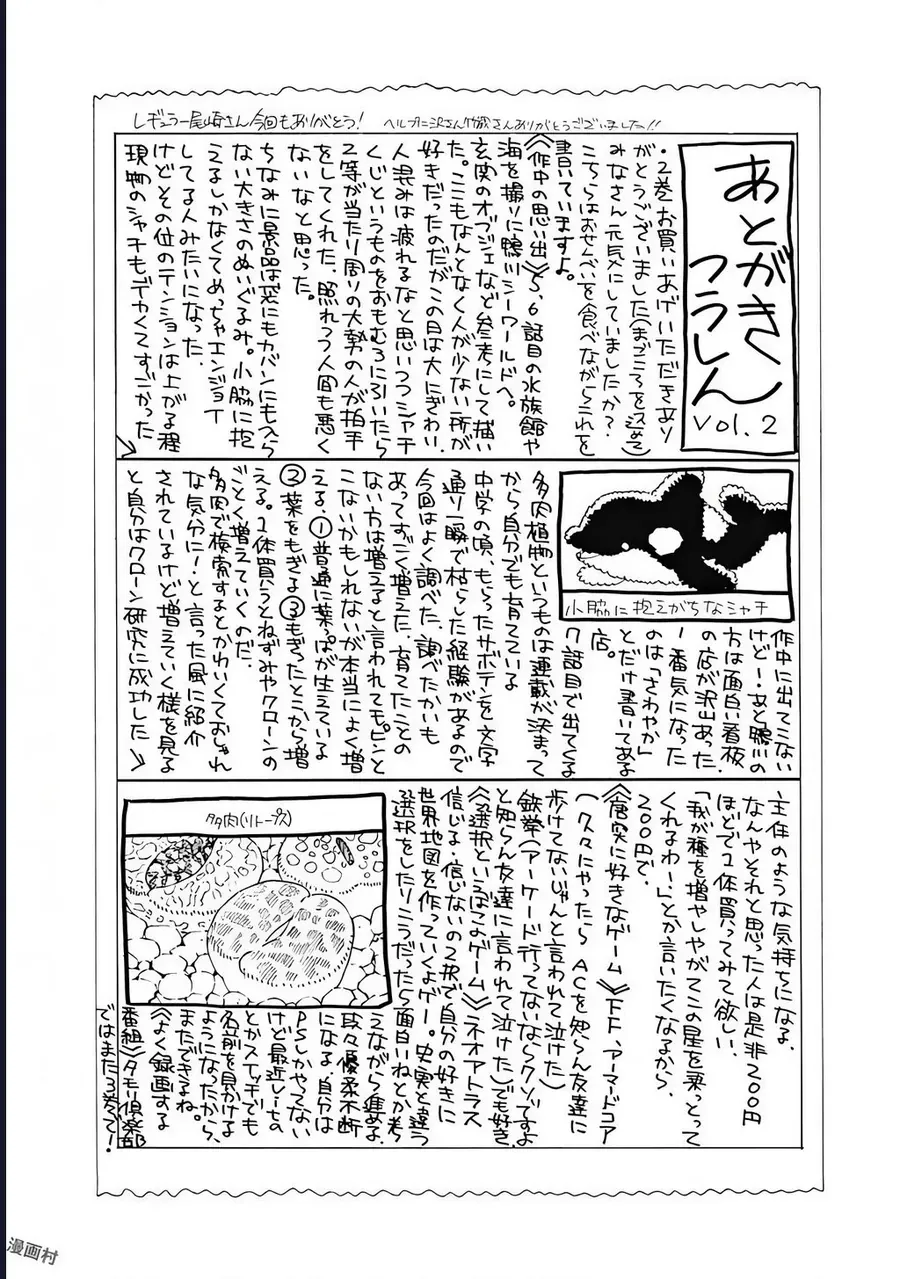 レギュラー尾崎さん今回もありがとう!
ヘルプ二沢さん竹成さんありがとうございました!!
あとがき
つうしん
vol.2
・2巻お買いあげいただきあり
がとうございました(まごころを込めて)
みなさん元気にしていましたか?
こちらはおせんべいを食べながらこれを
書いていますよ。
《作中の思い出》5,6話目の水族館や
海を撮りに鴨川シーワールドへ。
玄関のオブジェなど参考にして描い
た。ここもなんとなく人が少ない所が
好きだったのだがこの日は大にぎわい。
人混みは疲れるなと思いつつシャチ
くじというものをおもむろに引いたら
2等が当たり周りの大勢の人が拍手
をしてくれた、照れつつ人間も悪く
ないなと思った。
ちなみに景品は死にもカバンにも入ら
ない大きさのぬいぐるみ。小脇に抱
えるしかなくてめっちゃエンジョイ
してる人みたいになった。
けどその位のテンションは上がる程
現物のシャチもデカくてすごかった
小脇に抱えがちなシャチ
作中に出てこない
けどー・あと鴨川の
方は面白い看板
の店が沢山あった
一番気になった
のは「さわやか」
とだけ書いてある
店。
7話目で出てくる
多肉植物というものは連載が決まって
から自分でも育てている
中学の頃、もらったサボテンを文字
通り一瞬で枯らした経験があるので
今回はよく調べた、調べたかいも
あってすごく増えた、育てたことの
ない方は増えると言われても。ピンと
こないかもしれないが本当によく増
える、①普通に葉っぱが生えている
②葉をもぎる③もぎったとこから増
える。1体買うとねずみやクローンの
ごとく増えていくのだ。
多肉で検索するとかわいくておしゃれ
な気分に!と言った風に紹介
されているけど増えていく様を見る
と自分はクローン研究に成功した
主任のような気持ちになる、
なんやそれと思った人は是非200円
ほどで1体買ってみて欲しい、
「我が種を増やしやがてこの星を乗っとって
くれるわー」とか言いたくなるから、
200円で、
《唐突に好きなゲーム》FF、アーマードコア
(久々にやったらACを知らん友達に
歩けてないじゃんと言われて泣けた)
鉄拳(アーケード行ってないならクソですよ
と知らん友達に言われて泣けた)でも好き、
《選択といえばこよゲーム》ネオアトラス
信じる・信じないの2択で自分の好きに
世界地図を作っていくよゲー。史実と違う
選択をしたりこうだったら面白いねとか考
えながら進める、
段々優柔不断
になる、自分は
PSしかやってない
けど最近レーセの
とかスイッチでも
名前を見かける
ようになったから、
まだできるね。
《よく録画する
番組》タモリ倶楽部
ではまた3巻で!
多肉(リトープス)
漫画村